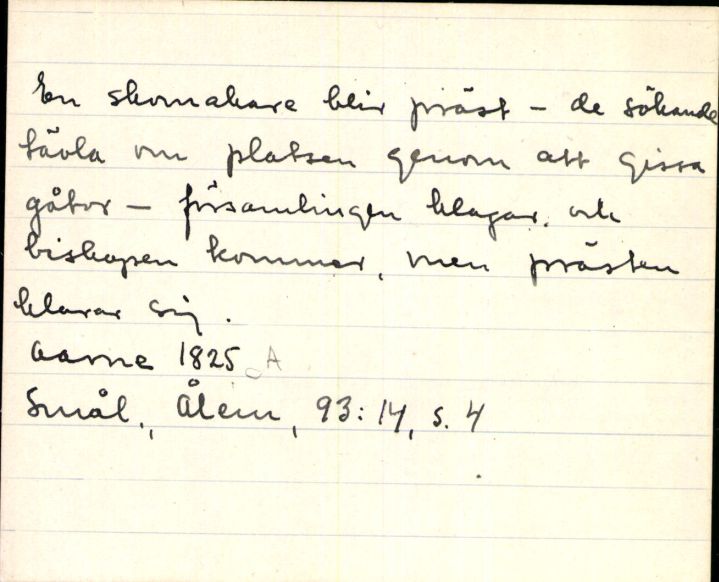 En skomakare blir präst – de sökande
tävla om platsen genom att gissa
gåtor – församlingen klagar, och
biskopen kommer, men prästen
klarar sig.
Aarne 1825 A
Smål., Ålem, 93:14, s. 4